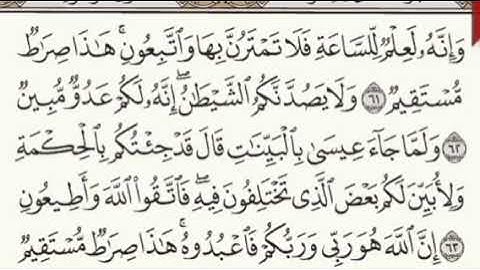 وَإِنَّهُۥ لَعِلْمٌ لِّلسَّاعَةِ فَلَا تَمْتَرُنَّ بِهَا وَٱتَّبِعُونِ ۚ هَٰذَا صِرَٰطٌ
مُّسْتَقِيمٌ ٦١ وَلَا يَصُدَّنَّكُمُ ٱلشَّيْطَٰنُ ۖ إِنَّهُۥ لَكُمْ عَدُوٌّ مُّبِينٌ
٦٢ وَلَمَّا جَآءَ عِيسَىٰ بِٱلْبَيِّنَٰتِ قَالَ قَدْ جِئْتُكُم بِٱلْحِكْمَةِ
وَلِأُبَيِّنَ لَكُم بَعْضَ ٱلَّذِى تَخْتَلِفُونَ فِيهِ ۖ فَٱتَّقُوا۟ ٱللَّهَ وَأَطِيعُونِ
٦٣ إِنَّ ٱللَّهَ هُوَ رَبِّى وَرَبُّكُمْ فَٱعْبُدُوهُ ۚ هَٰذَا صِرَٰطٌ مُّسْتَقِيمٌ